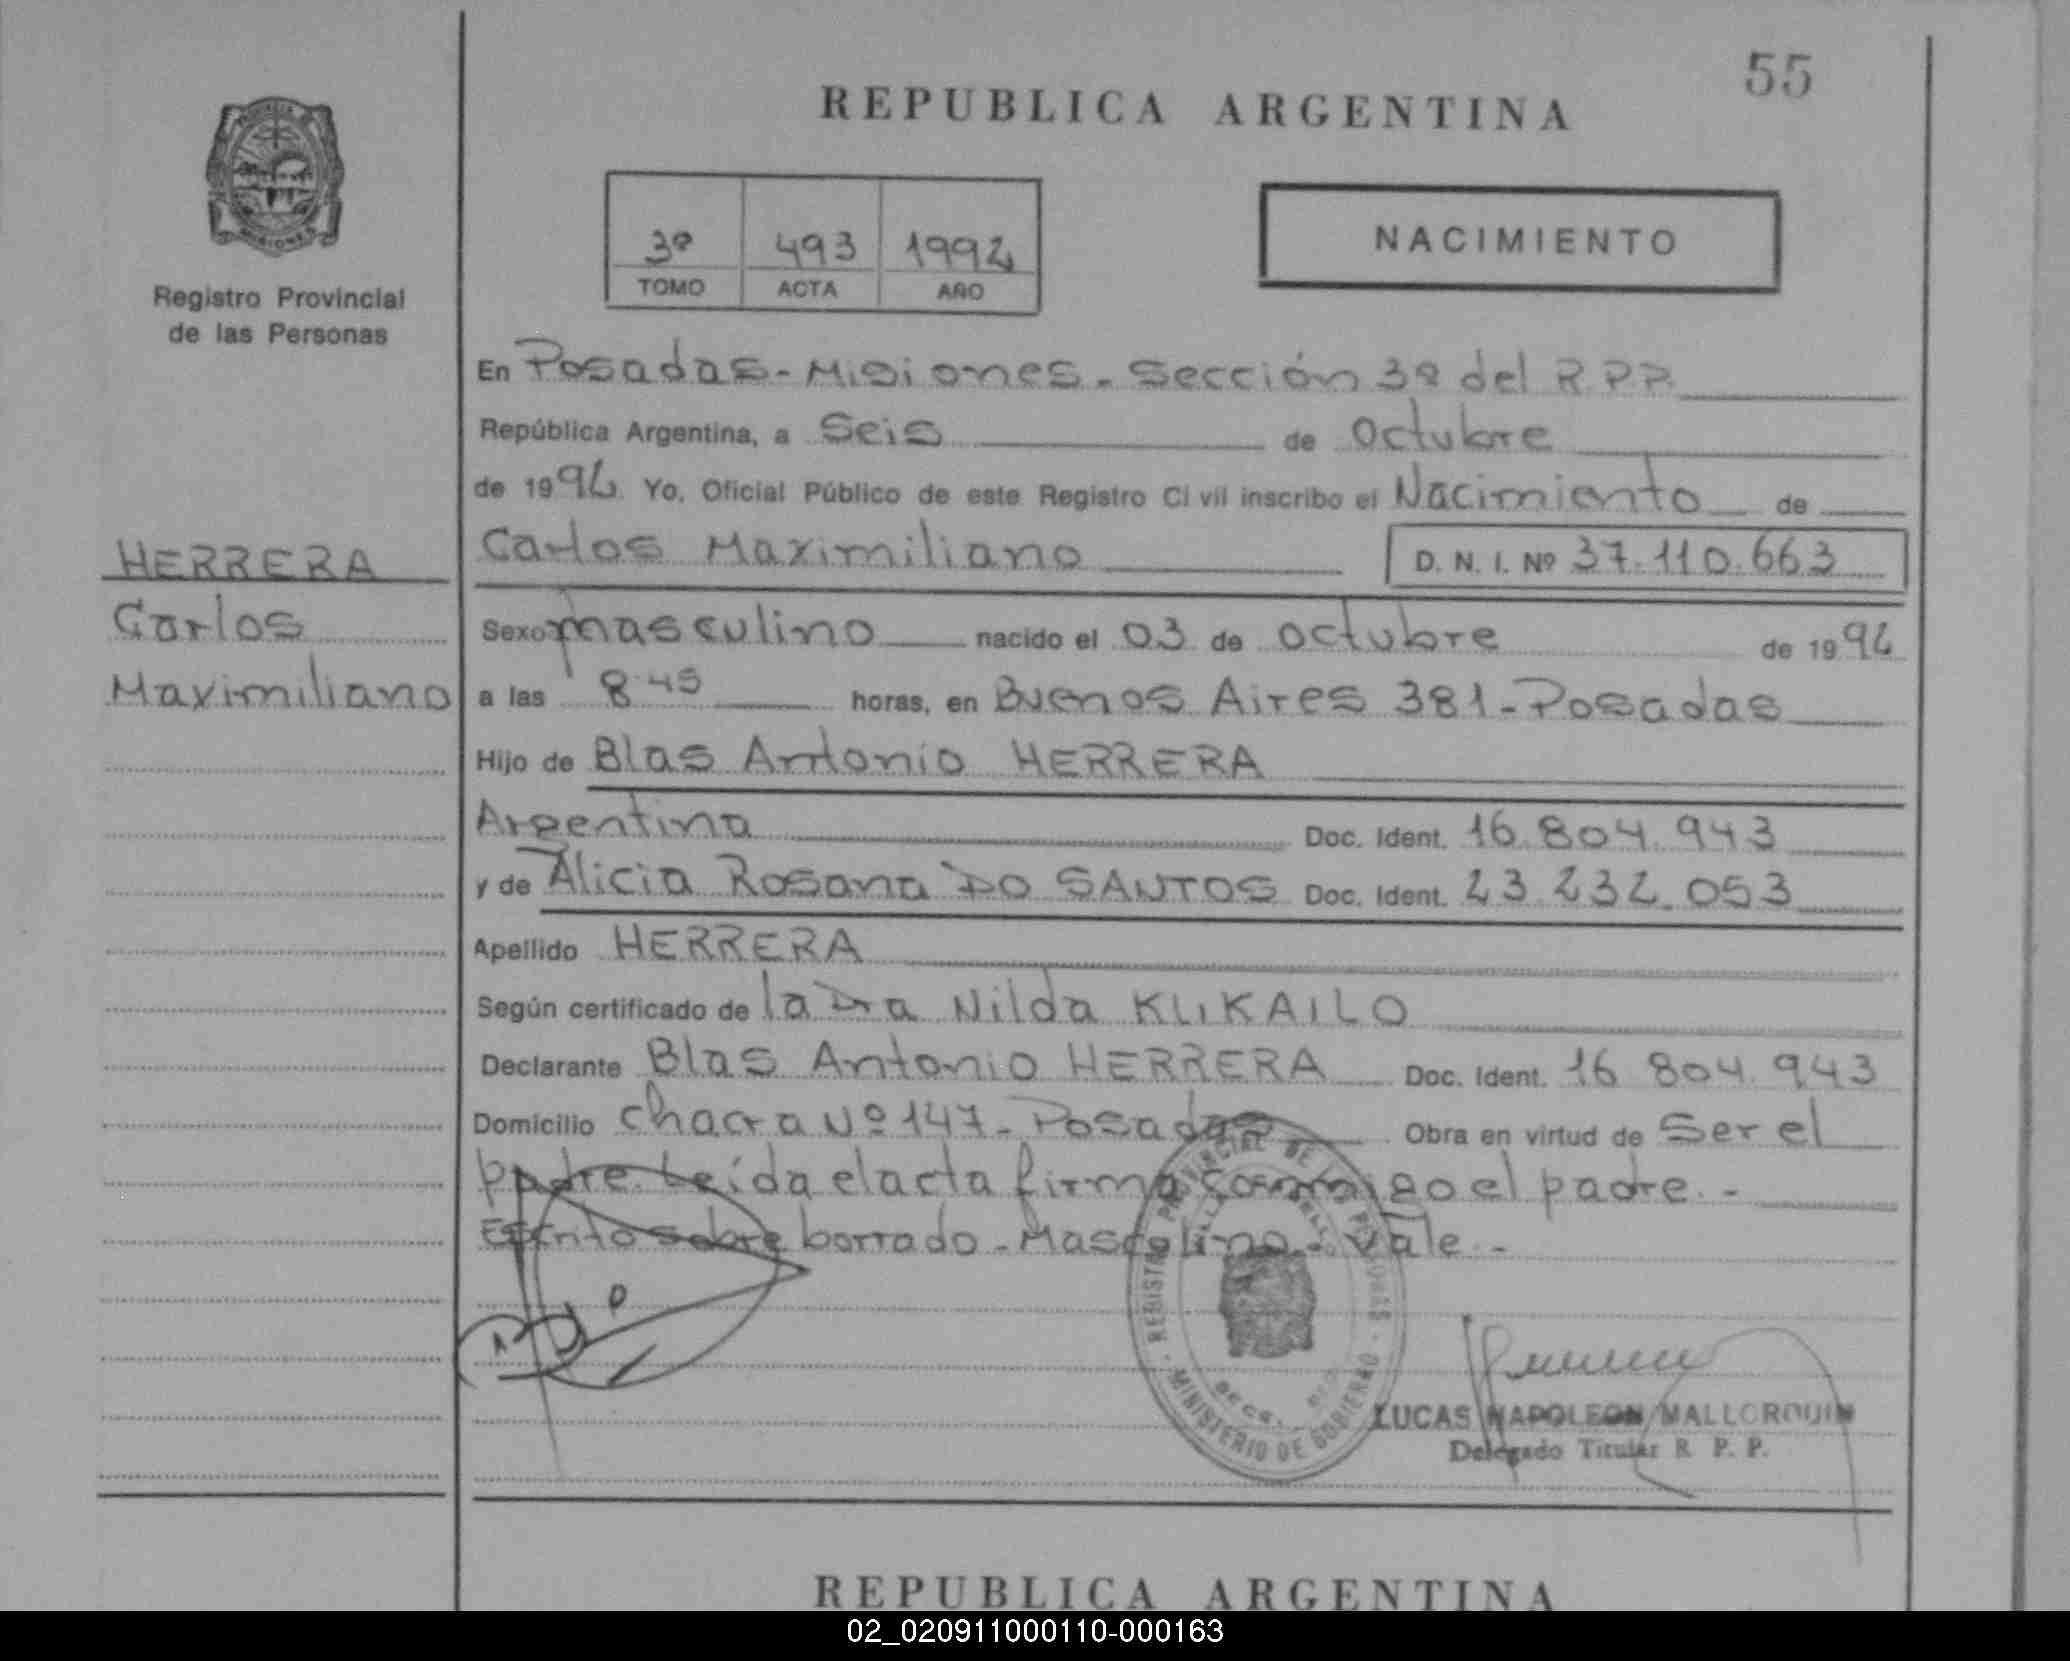 55
REPUBLICA ARGENTINA
PROVINCIA DE MISIONES
Registro Provincial
de las Personas
3º 493 1992
TOMO ACTA AÑO
NACIMIENTO
En Posadas - Misiones - Sección 3º del R.P.P.
República Argentina, a Seis de Octubre
de 1992 Yo, Oficial Público de este Registro Civil inscribo el Nacimiento de
Carlos Maximiliano D. N. I. Nº 37.110.663
HERRERA
Carlos
Maximiliano
Sexo masculino nacido el 03 de octubre de 1992
a las 8.45 horas, en Buenos Aires 381 - Posadas
Hijo de Blas Antonio HERRERA
Argentina Doc. Ident. 16.804.943
y de Alicia Rosana DO SANTOS Doc. Ident. 23.232.053
Apellido HERRERA
Según certificado de la Dra Nilda KLIKAILO
Declarante Blas Antonio HERRERA Doc. Ident. 16 804.943
Domicilio chacra Nº 147 - Posadas Obra en virtud de Ser el
padre. Leída el acta firma conmigo el padre. -
Escrito sobre borrado - Masculino - Vale. -
REGISTRO PROVINCIAL DE LAS PERSONAS
MINISTERIO DE GOBIERNO
LUCAS NAPOLEON MALLORQUIN
Delegado Titular R. P. P.
REPUBLICA ARGENTINA
02_020911000110-000163